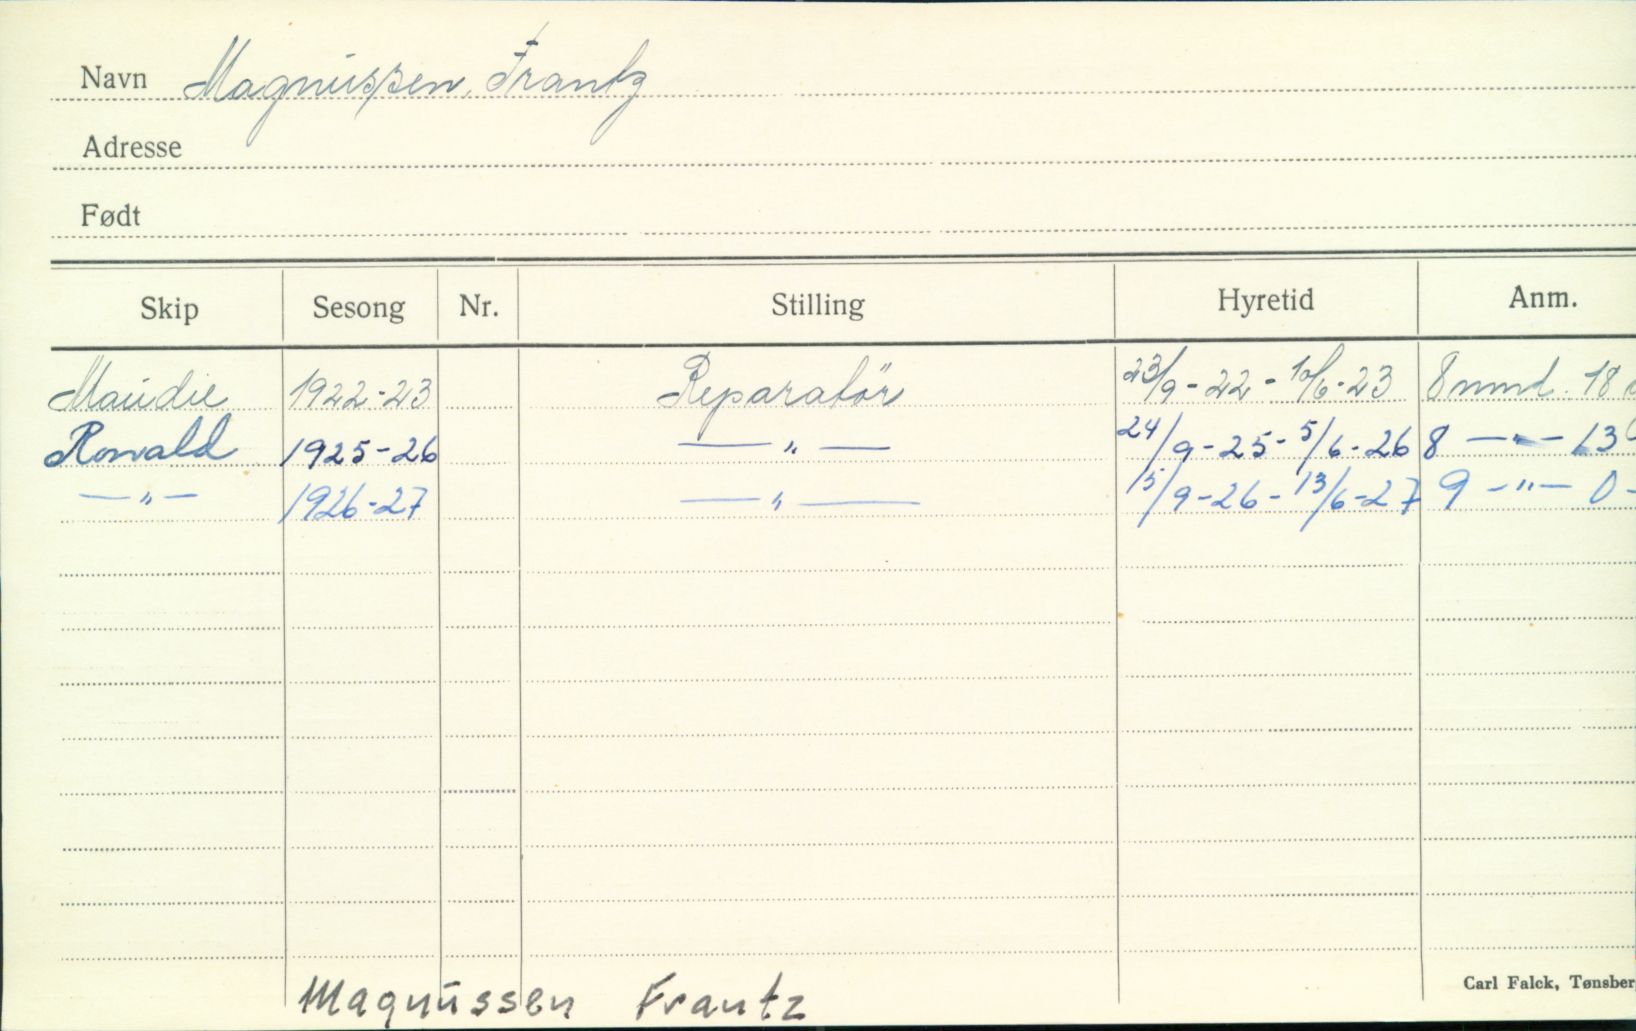 Navn Magnussen, Frantz
Adresse
Født
Skip Sesong Nr. Stilling Hyretid Anm.
Maudie 1922-23 Reparatør 23/9-22-10/6-23 8 mnd. 18
Ronald 1925-26 —"— 24/9-25-5/6-26 8 —"— 13
—"— 1926-27 —"— 15/9-26-13/6-27 9 —"— 0-
Magnussen Frantz
Carl Falck, Tønsber